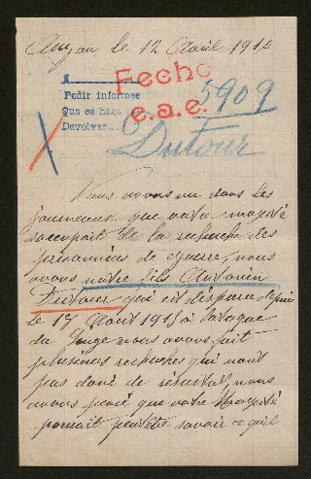 le 12 Avril 1916
Fecho
Pedir informes
Que se hace
Devolver
e.a.e.
5909
Dufour
Nous avons vu dans les
journeaux que votre magesté
s'occupait de la recherche des
prisonniers de guerre, nous
avons notre fils Antonin
Dufour qui est disparu depuis
le 17 Aout 1915 à
du Linge nous avons fait
plusieurs recherches qui nont
pas doné de résultat, nous
avons pensé que votre Magesté
pourrait peutetre savoir ce quil